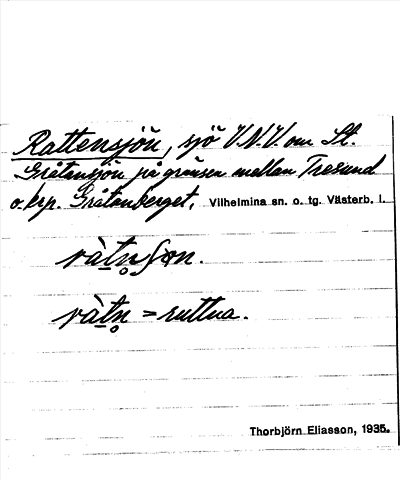 Rattensjön, sjö V.N.V. om St.
Gråtansjön på gränsen mellan Tresund
o. krp. Gråtanberget. Vilhelmina sn. o. tg. Västerb. l.
ràtn̥ʃøn.
ràtn̥ = ruttna.
Thorbjörn Eliasson, 1935.